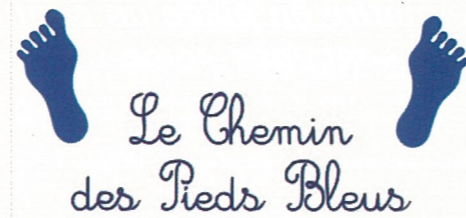 Le Chemin
des Pieds Bleus